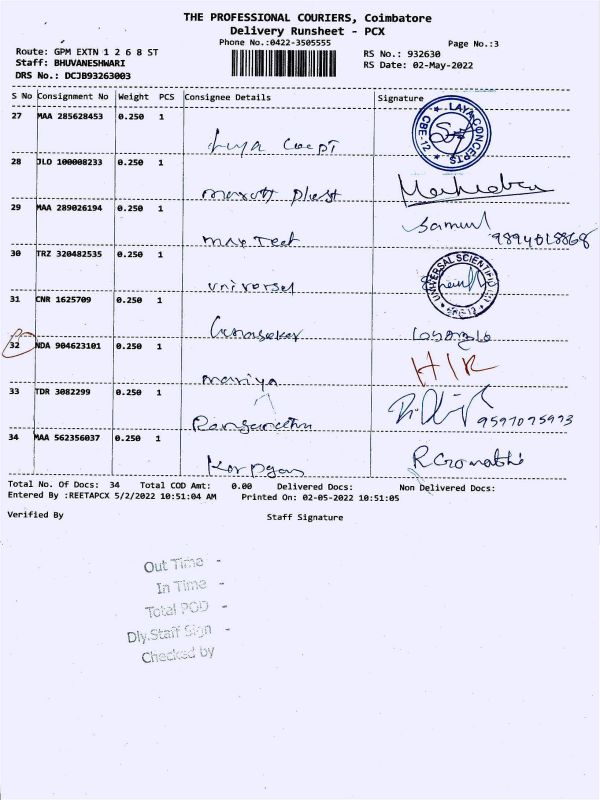 THE PROFESSIONAL COURIERS, Coimbatore
Delivery Runsheet - PCX
Phone No.:0422-3505555
Page No.:3
Route: GPM EXTN 1 2 6 8 ST
RS No.: 932630
Staff: BHUVANESHWARI
RS Date: 02-May-2022
DRS No.: DCJB93263003
S No Consignment No Weight PCS Consignee Details Signature
27 MAA 285628453 0.250 1
LAYA CONCEPTS
CBE-12
28 JLO 100008233 0.250 1
29 MAA 289026194 0.250 1
Samuel
9894018868
30 TRZ 320482535 0.250 1
universal
UNIVERSAL SCIENTIFIC
31 CNR 1625709 0.250 1
32 NDA 904623101 0.250 1
H/R
mariya
33 TDR 3082299 0.250 1
9597075993
34 MAA 562356037 0.250 1
Total No. Of Docs: 34 Total COD Amt: 0.00 Delivered Docs: Non Delivered Docs:
Entered By :REETAPCX 5/2/2022 10:51:04 AM Printed On: 02-05-2022 10:51:05
Verified By Staff Signature
Out Time -
In Time -
Total POD -
Dly.Staff Sign -
Checked by